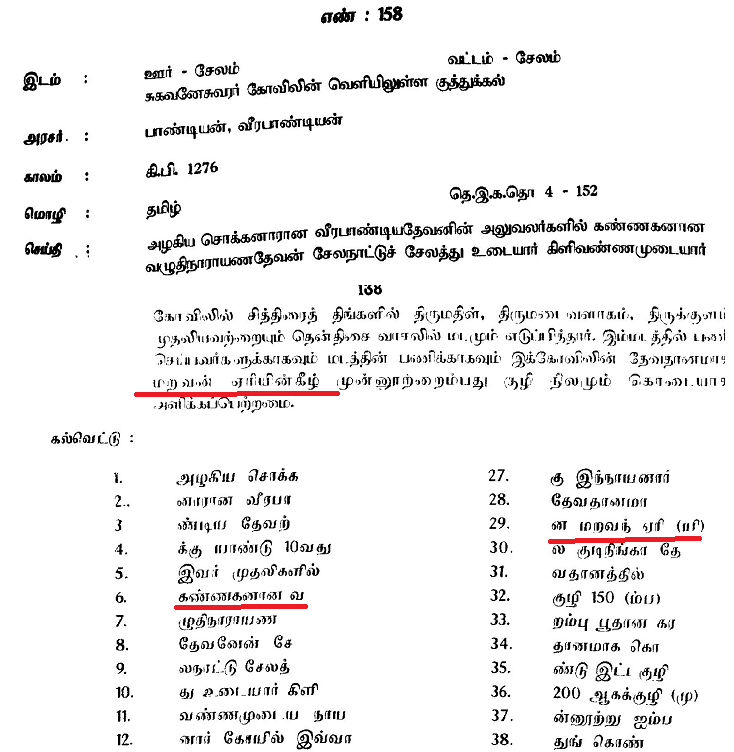 எண் : 158
இடம் : ஊர் - சேலம் வட்டம் - சேலம்
சுகவனேசுவரர் கோவிலின் வெளியிலுள்ள குத்துக்கல்
அரசர் : பாண்டியன், வீரபாண்டியன்
காலம் : கி.பி. 1276
மொழி : தமிழ் தெ.இ.க.தொ 4 - 152
செய்தி : அழகிய சொக்கனாரான வீரபாண்டியதேவனின் அலுவலர்களில் கண்ணகனான
வழுதிநாராயணதேவன் சேலநாட்டுச் சேலத்து உடையார் கிளிவண்ணமுடையார்
158
கோவிலில் சித்திரைத் திங்களில் திருமதிள், திருமடைவளாகம், திருக்குளம்
முதலியவற்றையும் தென்திசை வாசலில் மடமும் எடுப்பித்தார். இம்மடத்தில் பணி
செய்யவர்களுக்காகவும் மடத்தின் பணிக்காகவும் இக்கோவிலின் தேவதானமாக
மறவன் ஏரியின்கீழ் முன்னூற்றைம்பது குழி நிலமும் கொடையாக
அளிக்கப்பெற்றமை.
கல்வெட்டு :
1. அழகிய சொக்க
2. னாரான வீரபா
3 ண்டிய தேவற்
4. க்கு யாண்டு 10வது
5. இவர் முதலிகளில்
6. கண்ணகனான வ
7. ழுதிநாராயண
8. தேவனேன் சே
9. லநாட்டு சேலத்
10. து உடையார் கிளி
11. வண்ணமுடைய நாய
12. னார் கோயில் இவ்வா
27. கு இந்நாயனார்
28. தேவதானமா
29. ன மறவந் ஏரி (யி)
30. ல் குடிநிங்கா தே
31. வதானத்தில்
32. குழி 150 (ம்ப)
33. றம்பு பூதான கர
34. தானமாக கொ
35. ண்டு இட்ட குழி
36. 200 ஆகக்குழி (மு)
37. ன்னூற்று ஐம்ப
38. துங் கொண்